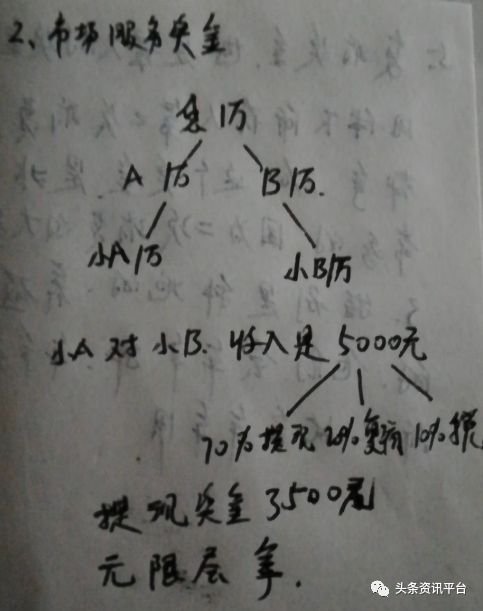 2、市场服务奖金
您1万
A 1万 B 1万.
小A 1万 小B 1万
小A 对 小B. 收入是 5000元
70%提现 20%复消 10%税
提现奖金3500元
无限层拿.
头条资讯平台